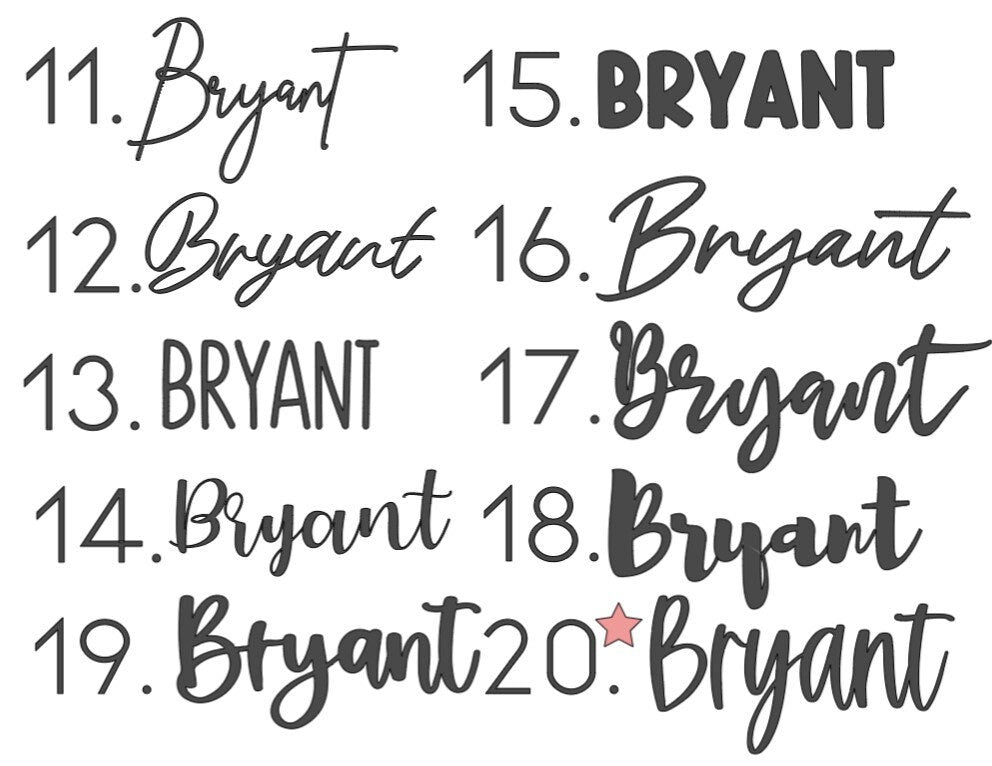 11. Bryant
15. BRYANT
12. Bryant
16. Bryant
13. BRYANT
17. Bryant
14. Bryant
18. Bryant
19. Bryant
20. Bryant